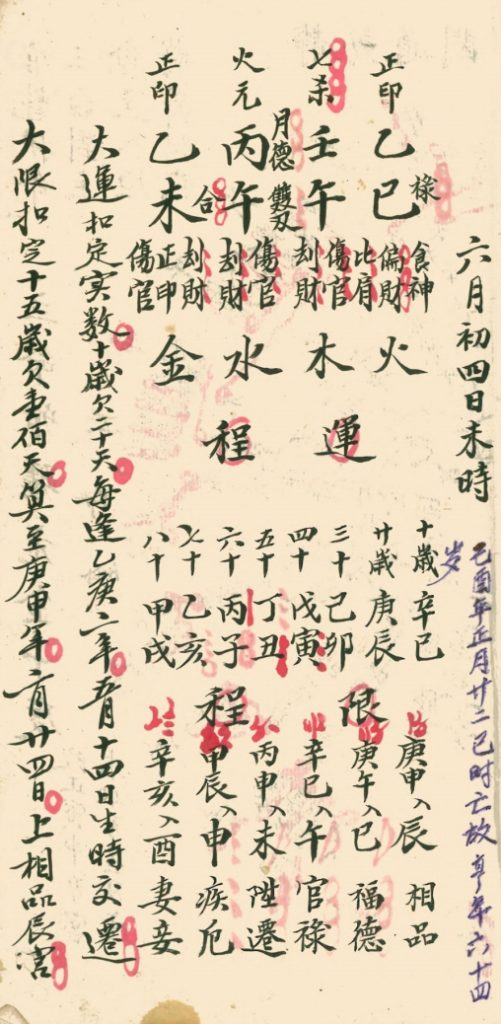 六月初四日未時
己酉年正月廿二巳时亡故享年六十四岁
正印
乙巳
祿
七杀
壬午
月德
雙刃
火元
丙午
合
正印
乙未
食神
偏財
比肩
傷官
刦財
傷官
刦財
刦財
正印
傷官
火
木
水
金
運程
十歲辛巳
廿歲庚辰
三十己卯
四十戊寅
五十丁丑
六十丙子
七十乙亥
八十甲戌
限程
庚申入辰 相品
庚午入巳 福德
辛巳入午 官祿
丙申入未 陞遷
甲辰入申 疾厄
辛亥入酉 妻妾
大運扣定实数十歲欠二十天每逢乙庚二年五月十四日生時交遷
大限扣定十五歲欠壹佰天算至庚申年二月廿四日上相品辰宮